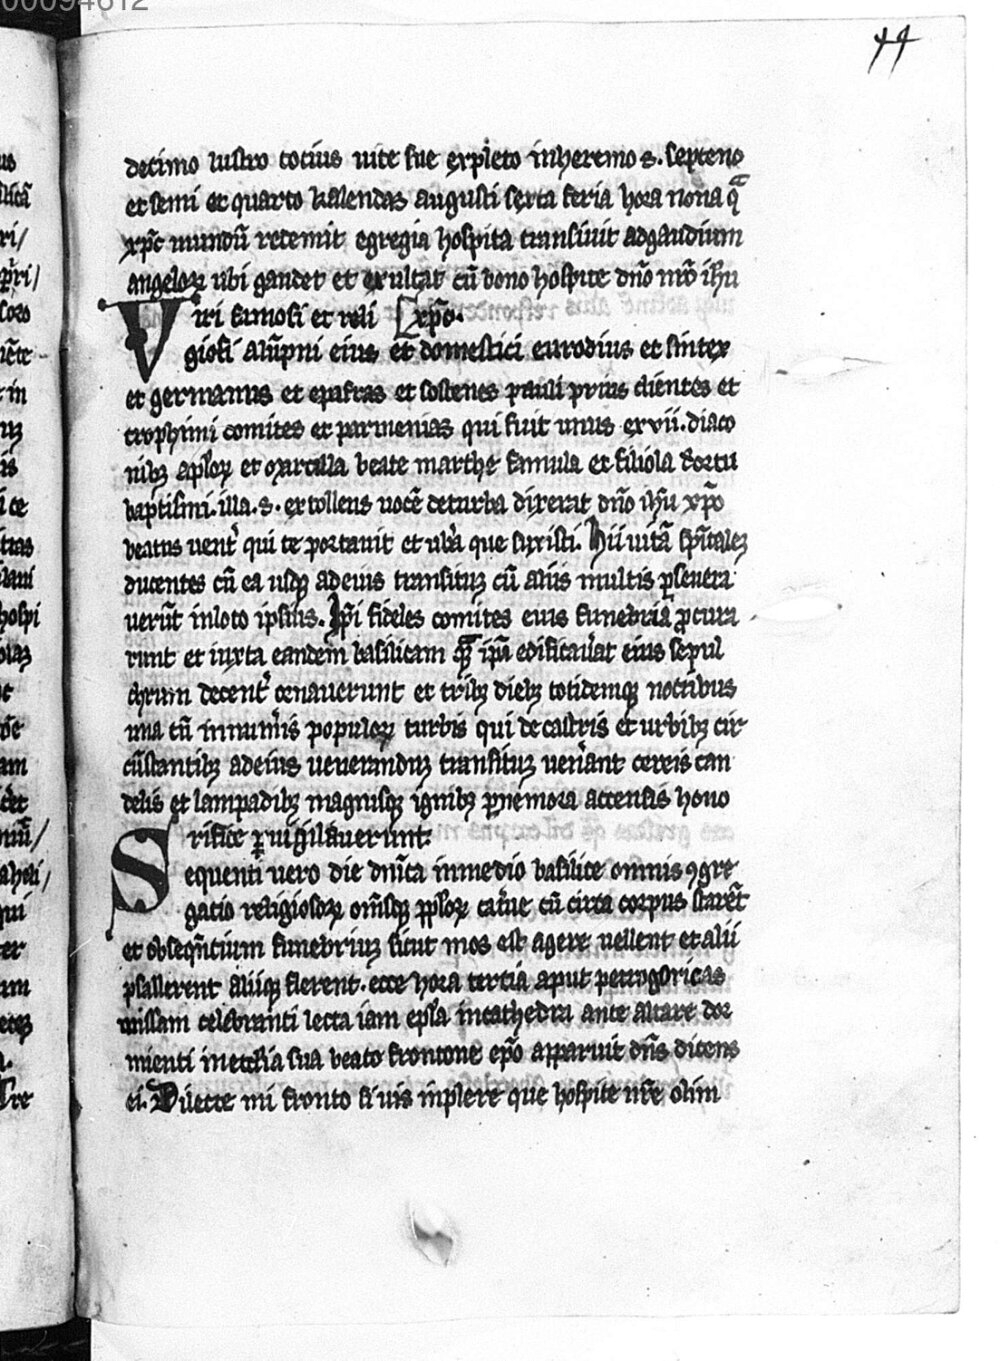 00094612
44
decimo lustro tocius uite sue expleto inheremo .s. septeno
et semi et quarto kalendas augusti sexta feria hora nona q̄
xp̄c mundū redemit egregia hospita transiuit adgaudium
angeloꝝ ubi gaudet et exultat cū bono hospite dn̄o nr̄o ih̄u
Viri famosi et reli [xp̄o.
giosi alūpni eius et domestici eurodius et sintex
et germanus et epafras et sostenes pauli prius clientes et
trophimi comites et parmenias qui fuit unus ex vii. diaco
nibꝫ apl̄oꝝ et marcilla beate marthe famula et filiola
baptismi. illa .s. extollens uocē deturba dixerat dn̄o ih̄u xp̄o
beatus uent̾ qui te portauit et ub̾a que suxisti. Hii uitā sp̄italeꝫ
ducentes cū ea usqꝫ adeius transituꝫ cū aliis multis ꝑseuera
uerūt inloco ipsius. Ip̄i fideles comites eius funebria ꝓcura
runt et iuxta eandem basilicam quā ip̄a edificau̾at eius sepul
chrum decent̾ et tribꝫ diebꝫ totidemqꝫ noctibus
una cū innum̾is populoꝝ turbis qui decastris et urbibꝫ cir
cūstantibꝫ adeius uenerandum transituꝫ uen̾ant cereis can
delis et lampadibꝫ magnisqꝫ ignibꝫ ꝑnemora accensis hono
rifice ꝑuigilauerunt.
Sequenti uero die dn̄ica inmedio basilice omnis ꝯgre
gatio religiosoꝝ om̄isqꝫ ppl̄oꝝ cat̾ue cū circa corpus starēt
et obsequium funebriuꝫ sicut mos est agere uellent et alii
psallerent aliiqꝫ flerent. ecce hora tertia aput petrogoricas
missam celebranti lecta iam epl̄a incathedra ante altare dor
mienti inecclesia sua beato frontone ep̄o apparuit dn̄s dicens
ei. Dilecte mi fronto si uis inplere que hospite nr̄e olim